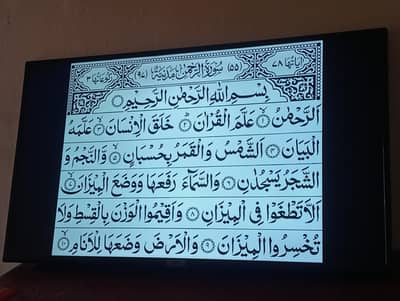 اٰيَاتُهَا ٧٨ (٥٥) سُوْرَةُ الرَّحْمٰنِ مَدَنِيَّةٌ (٩٧) رُكُوْعَاتُهَا ٣
بِسْمِ اللّٰهِ الرَّحْمٰنِ الرَّحِيْمِ
اَلرَّحْمٰنُ ۝١ عَلَّمَ الْقُرْاٰنَ ۝٢ خَلَقَ الْاِنْسَانَ ۝٣ عَلَّمَهُ
الْبَيَانَ ۝٤ اَلشَّمْسُ وَالْقَمَرُ بِحُسْبَانٍ ۝٥ وَّالنَّجْمُ وَ
الشَّجَرُ يَسْجُدٰنِ ۝٦ وَالسَّمَآءَ رَفَعَهَا وَوَضَعَ الْمِيْزَانَ ۝٧
اَلَّا تَطْغَوْا فِي الْمِيْزَانِ ۝٨ وَاَقِيْمُوا الْوَزْنَ بِالْقِسْطِ وَلَا
تُخْسِرُوا الْمِيْزَانَ ۝٩ وَالْاَرْضَ وَضَعَهَا لِلْاَنَامِ ۝١٠